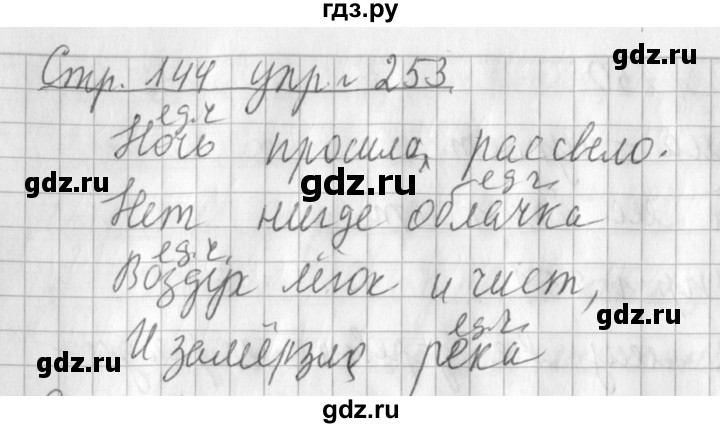 гдз.ру
Стр. 144 упр. 253.
gdz.ru
ед.ч
Ночь прошла, рассвело.
gdz.ru
gdz.ru
ед.ч.
Нет нигде облачка
ед.ч.
Воздух лёгок и чист,
gdz.ru
ед.ч.
И замёрзла река
gdz.ru
gdz.ru